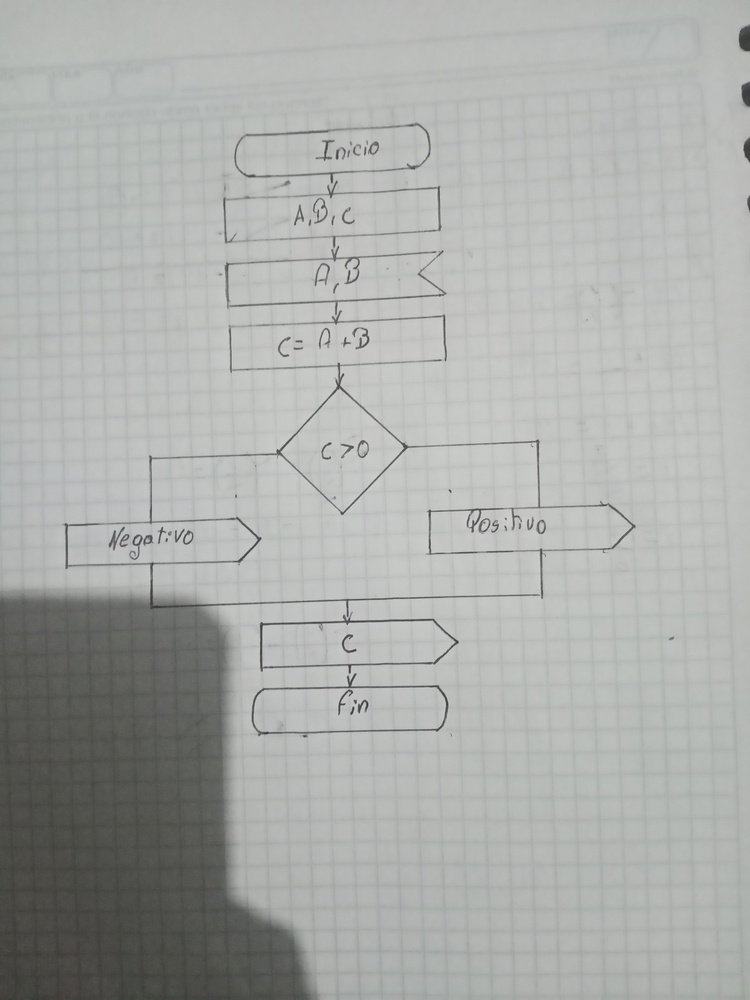 Inicio
A,B,C
A,B
C= A+B
C>0
Negativo
Positivo
C
Fin